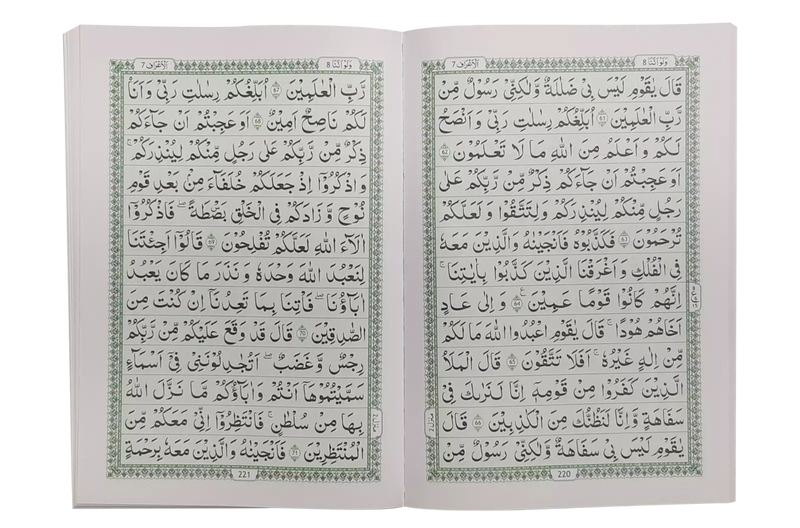 ولو اننا ٨
الاعراف ٧
قَالَ يٰقَوْمِ لَيْسَ بِىْ ضَلٰلَةٌ وَّلٰكِنِّىْ رَسُوْلٌ مِّنْ
رَّبِّ الْعٰلَمِيْنَ ۝٦١ اُبَلِّغُكُمْ رِسٰلٰتِ رَبِّىْ وَاَنْصَحُ
لَكُمْ وَاَعْلَمُ مِنَ اللّٰهِ مَا لَا تَعْلَمُوْنَ ۝٦٢
اَوَعَجِبْتُمْ اَنْ جَآءَكُمْ ذِكْرٌ مِّنْ رَّبِّكُمْ عَلٰى
رَجُلٍ مِّنْكُمْ لِيُنْذِرَكُمْ وَلِتَتَّقُوْا وَلَعَلَّكُمْ
تُرْحَمُوْنَ ۝٦٣ فَكَذَّبُوْهُ فَاَنْجَيْنٰهُ وَالَّذِيْنَ مَعَهٗ
فِى الْفُلْكِ وَاَغْرَقْنَا الَّذِيْنَ كَذَّبُوْا بِاٰيٰتِنَا ؕ
اِنَّهُمْ كَانُوْا قَوْمًا عَمِيْنَ ۝٦٤ وَاِلٰى عَادٍ
اَخَاهُمْ هُوْدًا ؕ قَالَ يٰقَوْمِ اعْبُدُوا اللّٰهَ مَا لَكُمْ
مِّنْ اِلٰهٍ غَيْرُهٗ ؕ اَفَلَا تَتَّقُوْنَ ۝٦٥ قَالَ الْمَلَاُ
الَّذِيْنَ كَفَرُوْا مِنْ قَوْمِهٖۤ اِنَّا لَنَرٰىكَ فِىْ
سَفَاهَةٍ وَّاِنَّا لَنَظُنُّكَ مِنَ الْكٰذِبِيْنَ ۝٦٦ قَالَ
يٰقَوْمِ لَيْسَ بِىْ سَفَاهَةٌ وَّلٰكِنِّىْ رَسُوْلٌ مِّنْ
220
ولو اننا ٨
الاعراف ٧
رَّبِّ الْعٰلَمِيْنَ ۝٦٧ اُبَلِّغُكُمْ رِسٰلٰتِ رَبِّىْ وَاَنَا
لَكُمْ نَاصِحٌ اَمِيْنٌ ۝٦٨ اَوَعَجِبْتُمْ اَنْ جَآءَكُمْ
ذِكْرٌ مِّنْ رَّبِّكُمْ عَلٰى رَجُلٍ مِّنْكُمْ لِيُنْذِرَكُمْ ؕ
وَاذْكُرُوْۤا اِذْ جَعَلَكُمْ خُلَفَآءَ مِنْۢ بَعْدِ قَوْمِ
نُوْحٍ وَّزَادَكُمْ فِى الْخَلْقِ بَصْۜطَةً ۚ فَاذْكُرُوْۤا
اٰلَآءَ اللّٰهِ لَعَلَّكُمْ تُفْلِحُوْنَ ۝٦٩ قَالُوْۤا اَجِئْتَنَا
لِنَعْبُدَ اللّٰهَ وَحْدَهٗ وَنَذَرَ مَا كَانَ يَعْبُدُ
اٰبَآؤُنَا ۚ فَاْتِنَا بِمَا تَعِدُنَاۤ اِنْ كُنْتَ مِنَ
الصّٰدِقِيْنَ ۝٧٠ قَالَ قَدْ وَقَعَ عَلَيْكُمْ مِّنْ رَّبِّكُمْ
رِجْسٌ وَّغَضَبٌ ؕ اَتُجَادِلُوْنَنِىْ فِىْۤ اَسْمَآءٍ
سَمَّيْتُمُوْهَاۤ اَنْتُمْ وَاٰبَآؤُكُمْ مَّا نَزَّلَ اللّٰهُ
بِهَا مِنْ سُلْطٰنٍ ؕ فَانْتَظِرُوْۤا اِنِّىْ مَعَكُمْ مِّنَ
الْمُنْتَظِرِيْنَ ۝٧١ فَاَنْجَيْنٰهُ وَالَّذِيْنَ مَعَهٗ بِرَحْمَةٍ
221